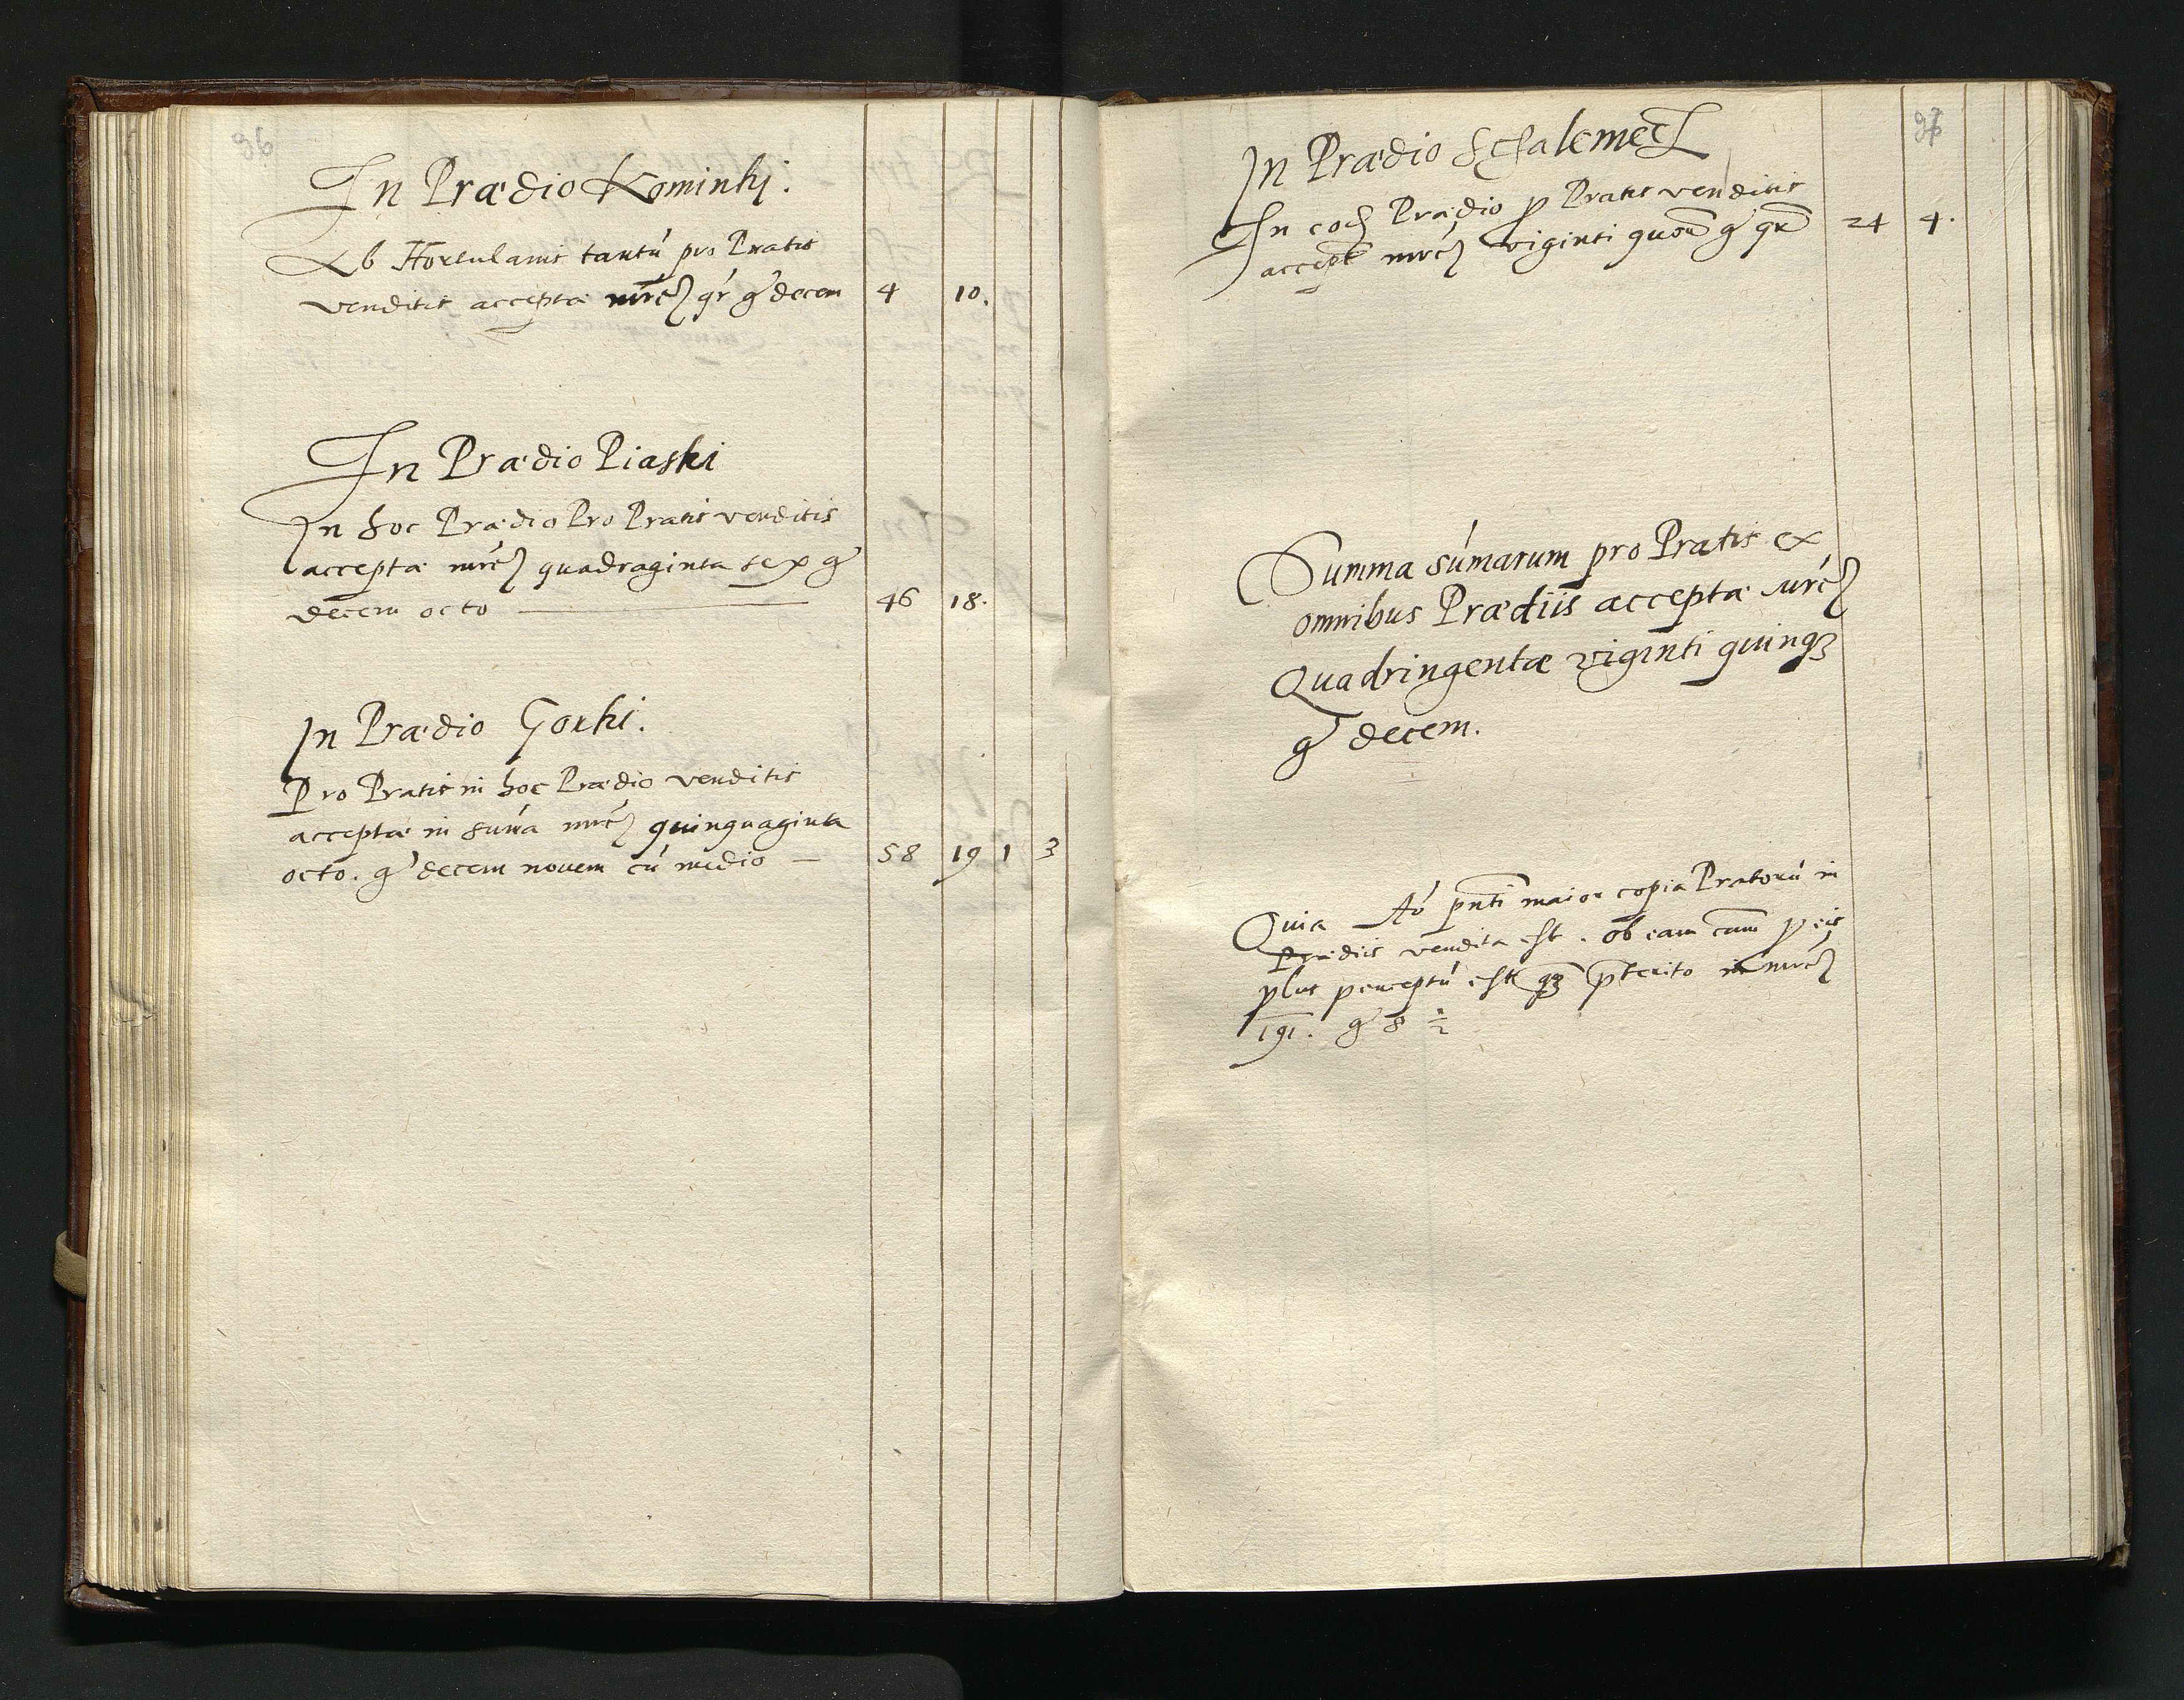 96
In Prædio Kominki.
Ab Hortulanis tantú pro Pratis
venditis acceptæ mrcę qr gͬ decem 4 10.
In Prædio Piaski
In hoc Prædio Pro Pratis venditis
acceptæ mrcę quadraginta sex gͬ
decem octo 46 18.
In Prædio Gorki.
Pro Pratis in hoc Prædio venditis
acceptæ in suma mrcę quinquaginta
octo. gͬ decem novem cú medio 58 19 1 3
97
In Prædio
In eod Prædio p Pratis venditis
accept mrcę viginti quatu gͬ qr 24 4.
Summa súmarum pro Pratis ex
omnibus Prædiis acceptæ mrcę
Quadringentæ viginti quinqꝫ
gͬ decem.
Quia Aó pnti maior copia Pratorú in
Prædiis vendita est. ob eam cam p eis
plus perceptú est qꝫ pterito in mrcę
191. gͬ 8 ½